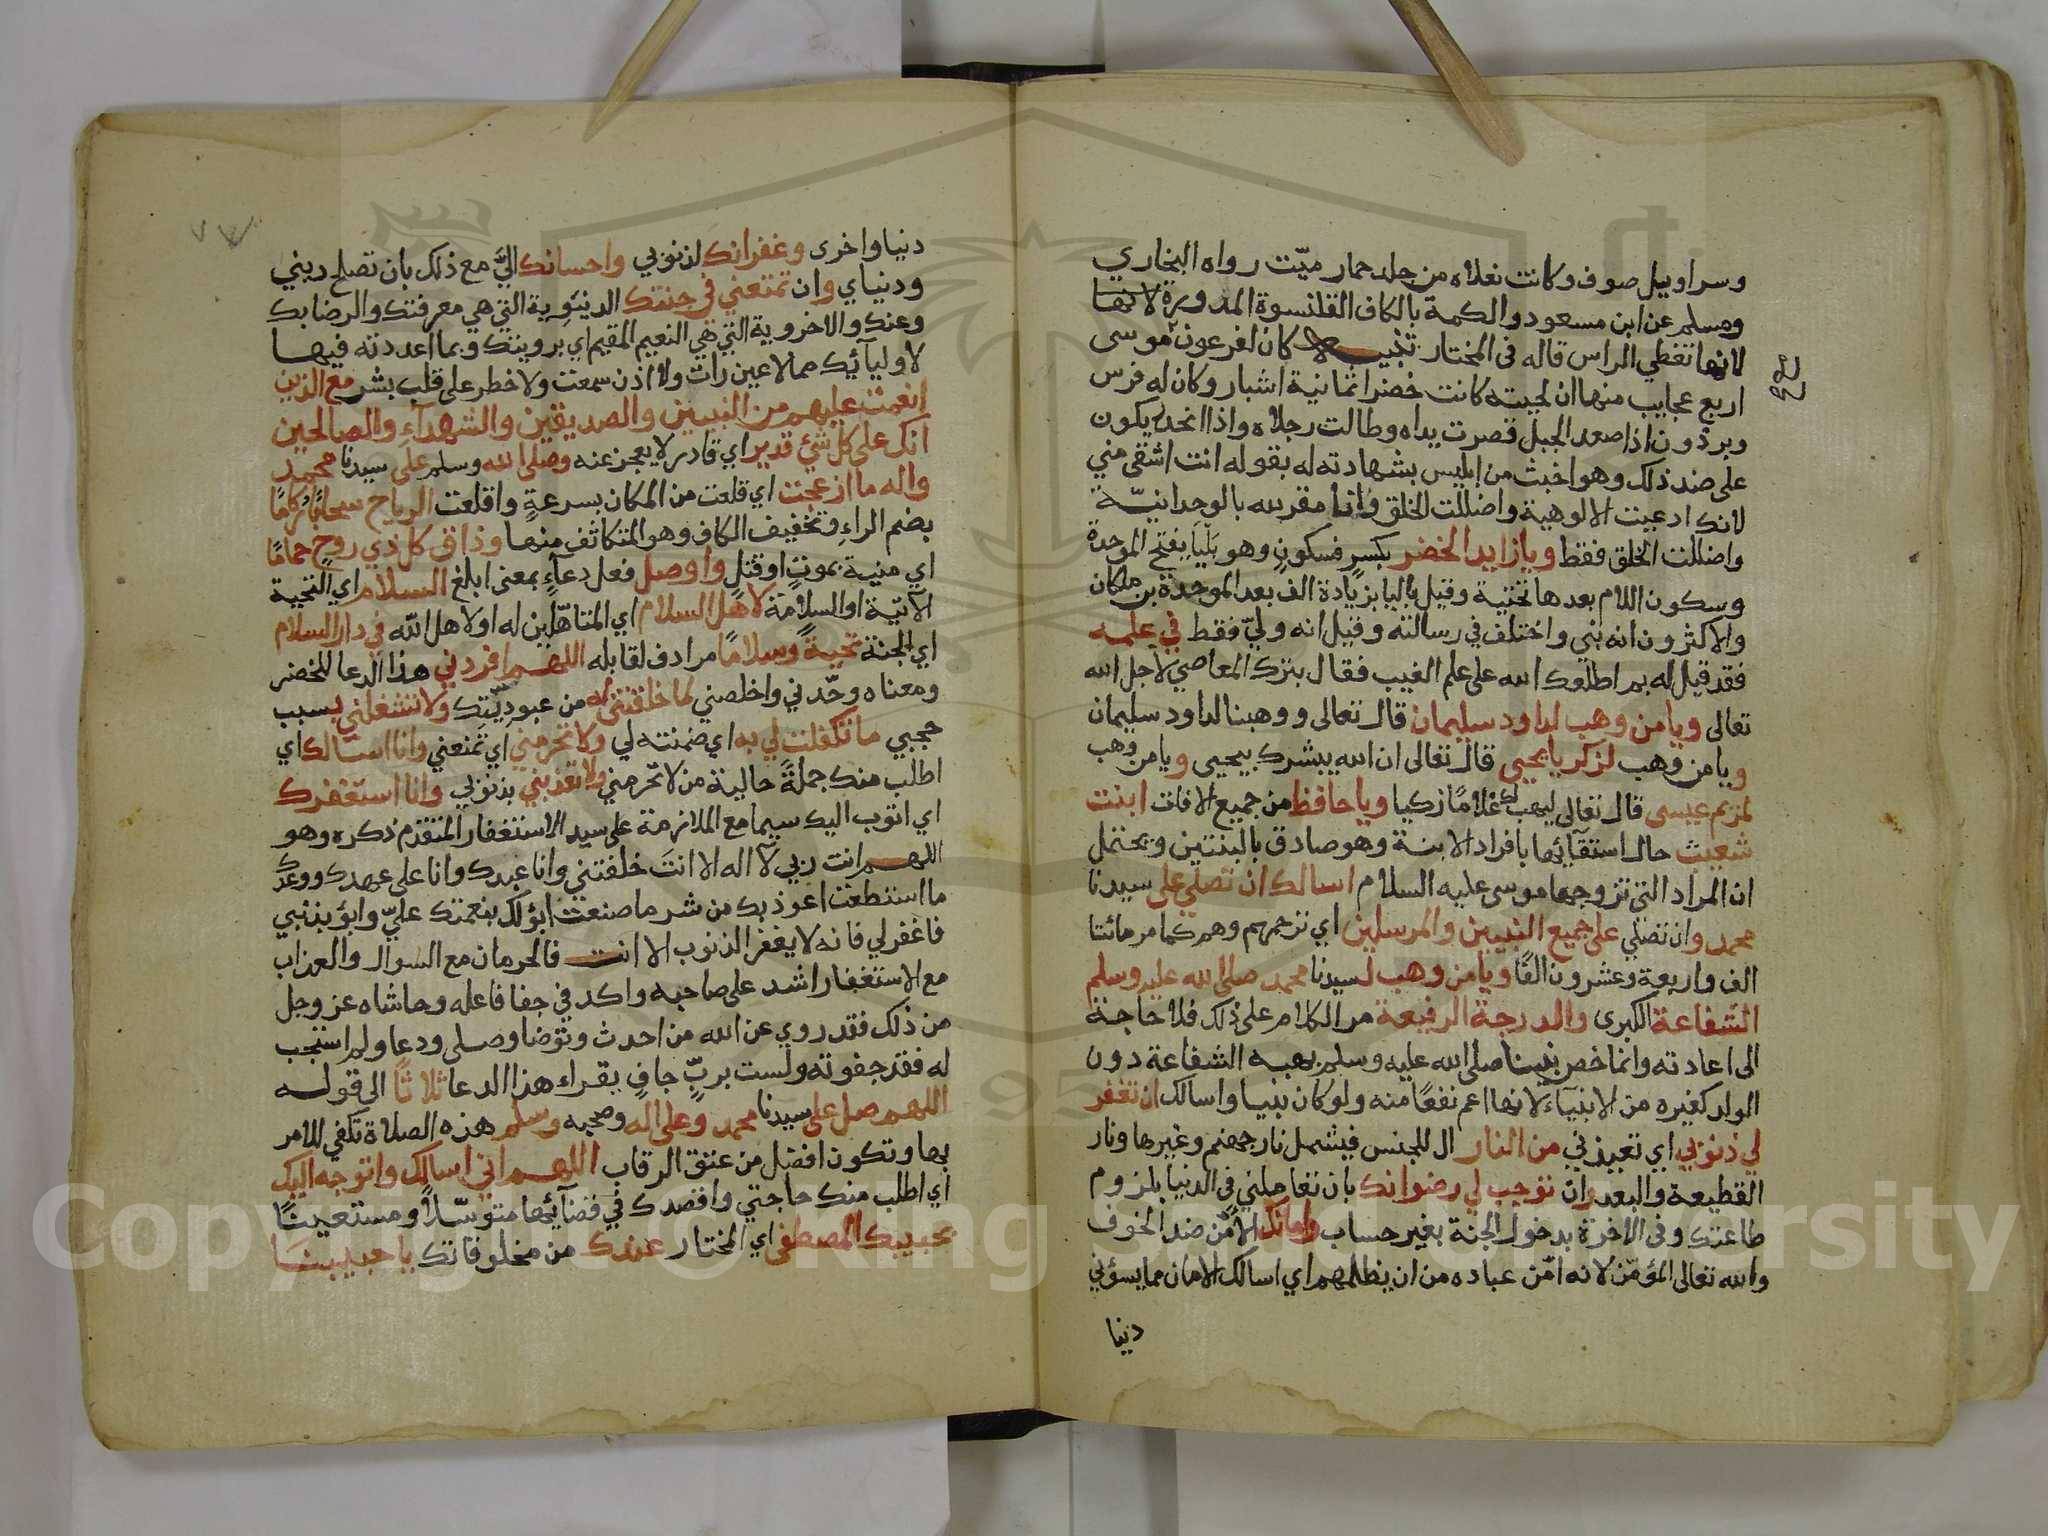 وسراويل صوف وكانت نعلاه من جلد حمار ميّت رواه البخاري
ومسلم عن ابن مسعود والكمة بالكاف القلنسوة المدورة لانها
لانها تغطي الراس قاله في المختار تنبيه كان لفرعون موسى
اربع عجايب منها ان لحيته كانت خضرا ثمانية اشبار وكان له فرس
وبرذون اذا صعد الجبل قصرت يداه وطالت رجلاه واذا انحدر يكون
على ضد ذلك وهو اخبث من ابليس بشهادته له بقوله انت اشقى مني
لانك ادعيت الالوهية واضللت الخلق وانا مقر لله بالوحدانيّة
واضللت الخلق فقط ويا زايد الخضر بكسر فسكون وهو بَلْيَا بفتح الموحدة
وسكون اللام بعدها تحتية وقيل باليا بزيادة الف بعد الموحدة بن ملكان
والاكثرون انه نبي واختلف في رسالته وقيل انه وليّ فقط في علمه
فقد قيل له بم اطلعك الله على علم الغيب فقال بترك المعاصي لاجل الله
تعالى ويا من وهب لداود سليمان قال تعالى ووهبنا لداود سليمان
ويا من وهب لزكريا يحيى قال تعالى ان الله يبشرك بيحيى ويا من وهب
لمريم عيسى قال تعالى ليهب لك غلامًا زكيا ويا حافظ من جميع الافات ابنت
شعيب حال استقآئها بافراد الابنة وهو صادق بالبنتين ويحتمل
ان المراد التي تزوجها موسى عليه السلام اسالك ان تصلي على سيدنا
محمد وان تصلي على جميع النبيين والمرسلين اي ترحمهم وهم كما مر مائتا
الف واربعة وعشرون الفًا ويا من وهب لسيدنا محمد صلى الله عليه وسلم
الشفاعة الكبرى والدرجة الرفيعة مر الكلام على ذلك فلا حاجة
الى اعادته وانما خص نبينا صلى الله عليه وسلم بهبة الشفاعة دون
الولد كغيره من الانبيآء لانها اعم نفعًا منه ولو كان نبيا واسالك ان تغفر
لي ذنوبي اي تعيذني من النار ال للجنس فيشمل نار جهنم وغيرها ونار
القطيعة والبعد وان توجب لي رضوانك بان تعاملني في الدنيا بلزوم
طاعتك وفي الاخرة بدخول الجنة بغير حساب وامانك الامن ضد الخوف
والله تعالى المؤمن لانه امّن عباده من ان يظلمهم اي اسالك الامان مما يسؤني
دنيا
دنيا واخرى وغفرانك لذنوبي واحسانك اليّ مع ذلك بان تصلح ديني
ودنياي وان تمتعني في جنتك الدنيوية التي هي معرفتك والرضا بك
وعنك والاخروية التي هي النعيم المقيم اي برويتك وبما اعددته فيها
لاوليآئك مما لا عين رات ولا اذن سمعت ولا خطر على قلب بشر مع الذين
انعمت عليهم من النبيين والصديقين والشهدآء والصالحين
انك على كل شئ قدير اي قادر لا يعجز عنه وصلى الله وسلم على سيدنا محمد
واله ما ازعجت اي قلعت من المكان بسرعةٍ واقلعت الرياح سحابًا ركامًا
بضم الراء وتخفيف الكاف وهو المتكاثف منها وذاق كل ذي روحٍ حمامًا
اي منية بموتٍ او قتلٍ واوصل فعل دعآءٍ بمعنى ابلغ السلام اي التحية
الآتية او السلامة لاهل السلام اي المتاهلين له او لاهل الله في دار السلام
اي الجنة تحيةً وسلامًا مرادف لقابله اللهم افردني هذا الدعا للخضر
ومعناه وحّدني واخلصني لما خلقتني له من عبوديّتك ولا تشغلني بسبب
حجبي ما تكفلت لي به اي ضمنته لي ولا تحرمني اي تمنعني وانا اسالك اي
اطلب منك جملةً حالية من لا تحرمني ولا تعذبني بذنوبي وانا استغفرك
اي اتوب اليك سيما مع الملازمة على سيد الاستغفار المتقدم ذكره وهو
اللهم انت ربي لآ اله الا انتَ خلقتني وانا عبدك وانا على عهدك ووعدك
ما استطعت اعوذ بك من شر ما صنعت ابؤ لك بنعمتك عليّ وابؤ بذنبي
فاغفر لي فانه لا يغفر الذنوب الا انت فالحرمان مع السوال والعذاب
مع الاستغفار اشد على صاحبه واكد في جفا فاعله وحاشاه عز وجل
من ذلك فقد روي عن الله من احدث وتوضا وصلى ودعا ولم استجب
له فقد جفوته ولست بربّ جافٍ يقراء هذا الدعا ثلاثًا الى قوله
اللهم صل على سيدنا محمد وعلى اله وصحبه وسلم هذه الصلاة تكفي للامر
بها وتكون افضل من عتق الرقاب اللهم اني اسالك واتوجه اليك
اي اطلب منك حاجتي واقصدك في قضآئها متوسّلاً ومستغيثًا
بحبيبك المصطفى اي المختار عندك من مخلوقاتك يا حبيبنا